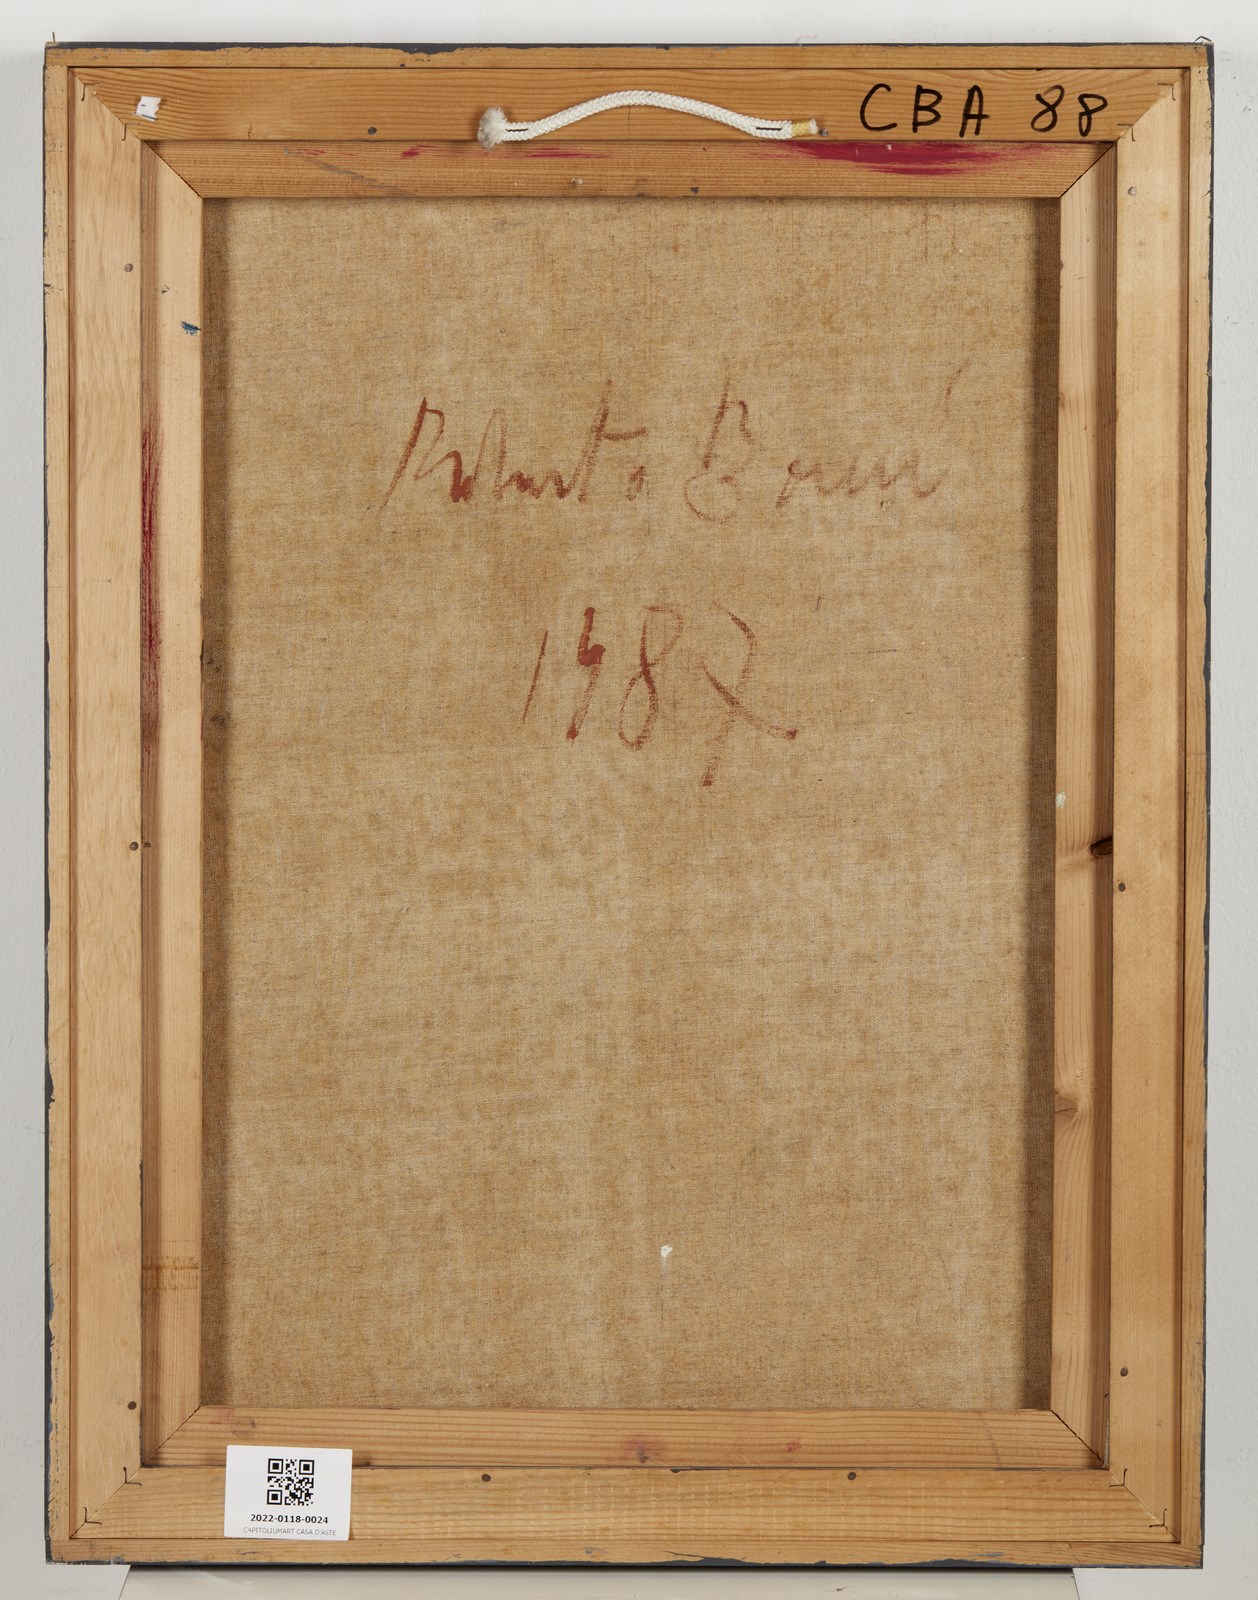 CBA 88
Roberto Borní
1987
2022-0118-0024
CAPITOLIUMART CASA D'ASTE